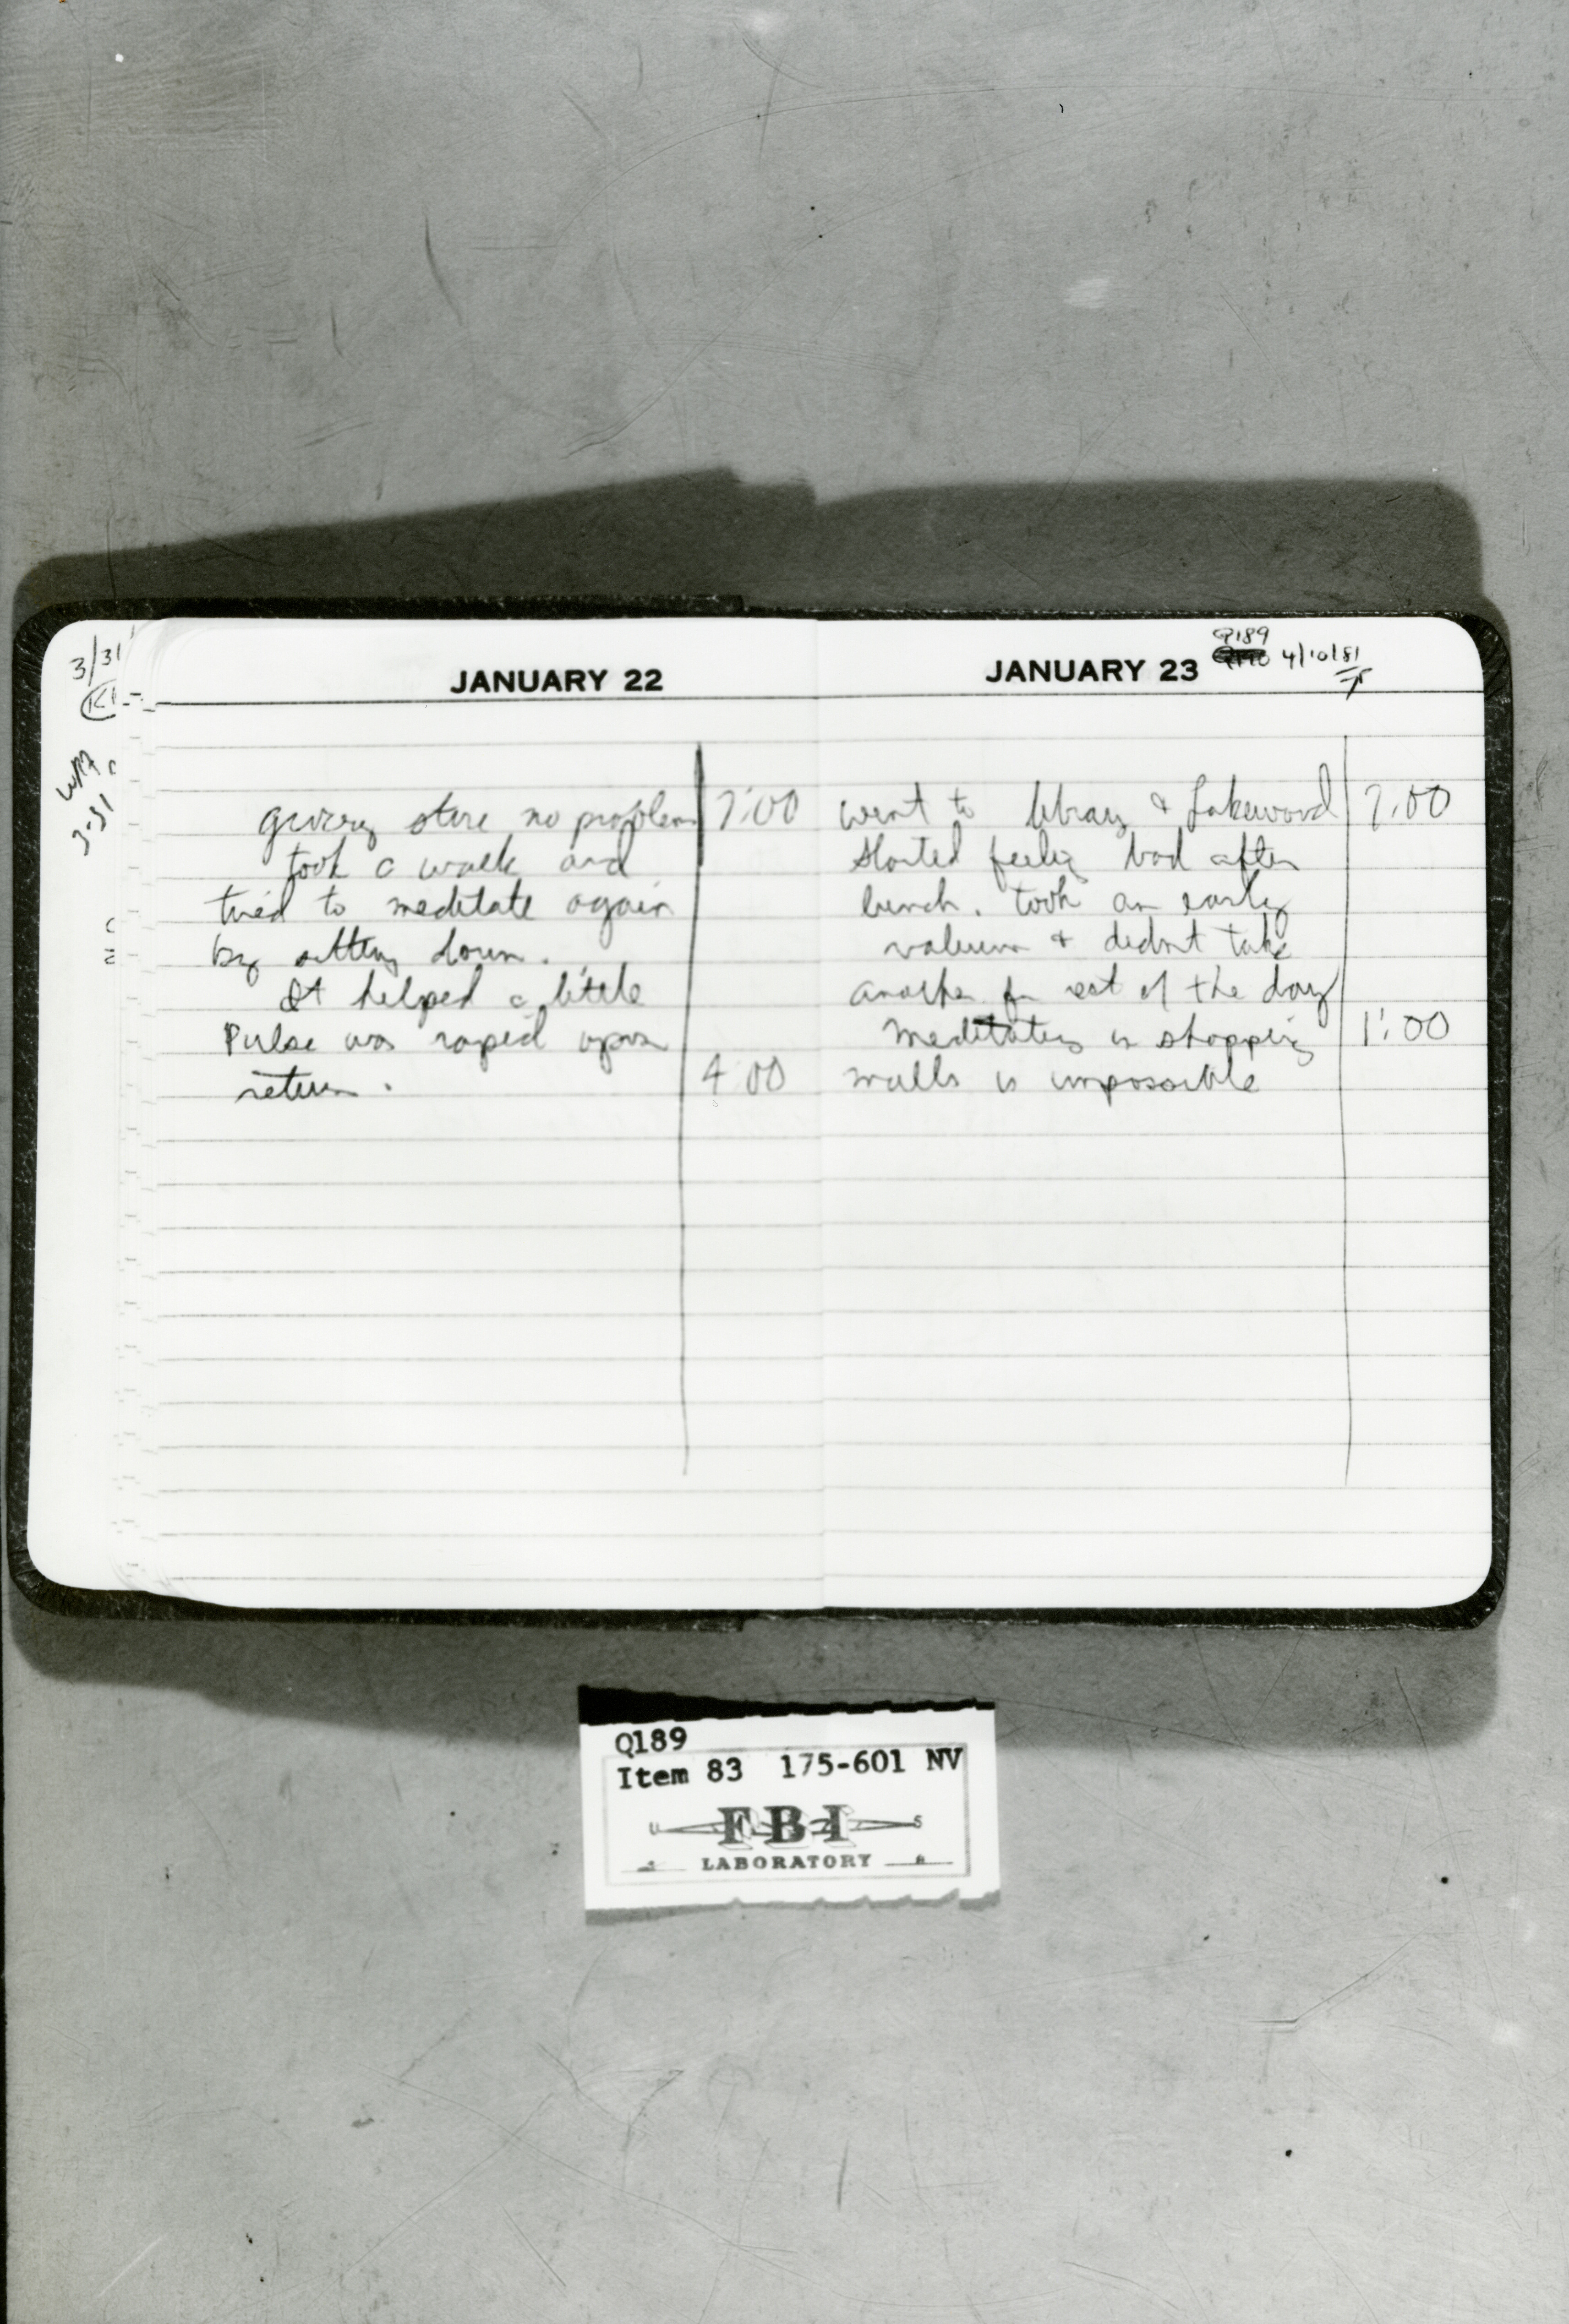 3/31
WM
3-31
JANUARY 22
grocery store no problem 7:00
took a walk and
tried to meditate again
by sitting down.
It helped a little
Pulse was rapid upon
return. 4 00
JANUARY 23
Q189
4/10/81
went to library & Lakewood 7:00
started feelig bad after
lunch. took an early
valium & didnt take
another for rest of the day
Meditating in shopping 1:00
malls is impossible
Q189
Item 83 175-601 NV
U S
FBI
LABORATORY